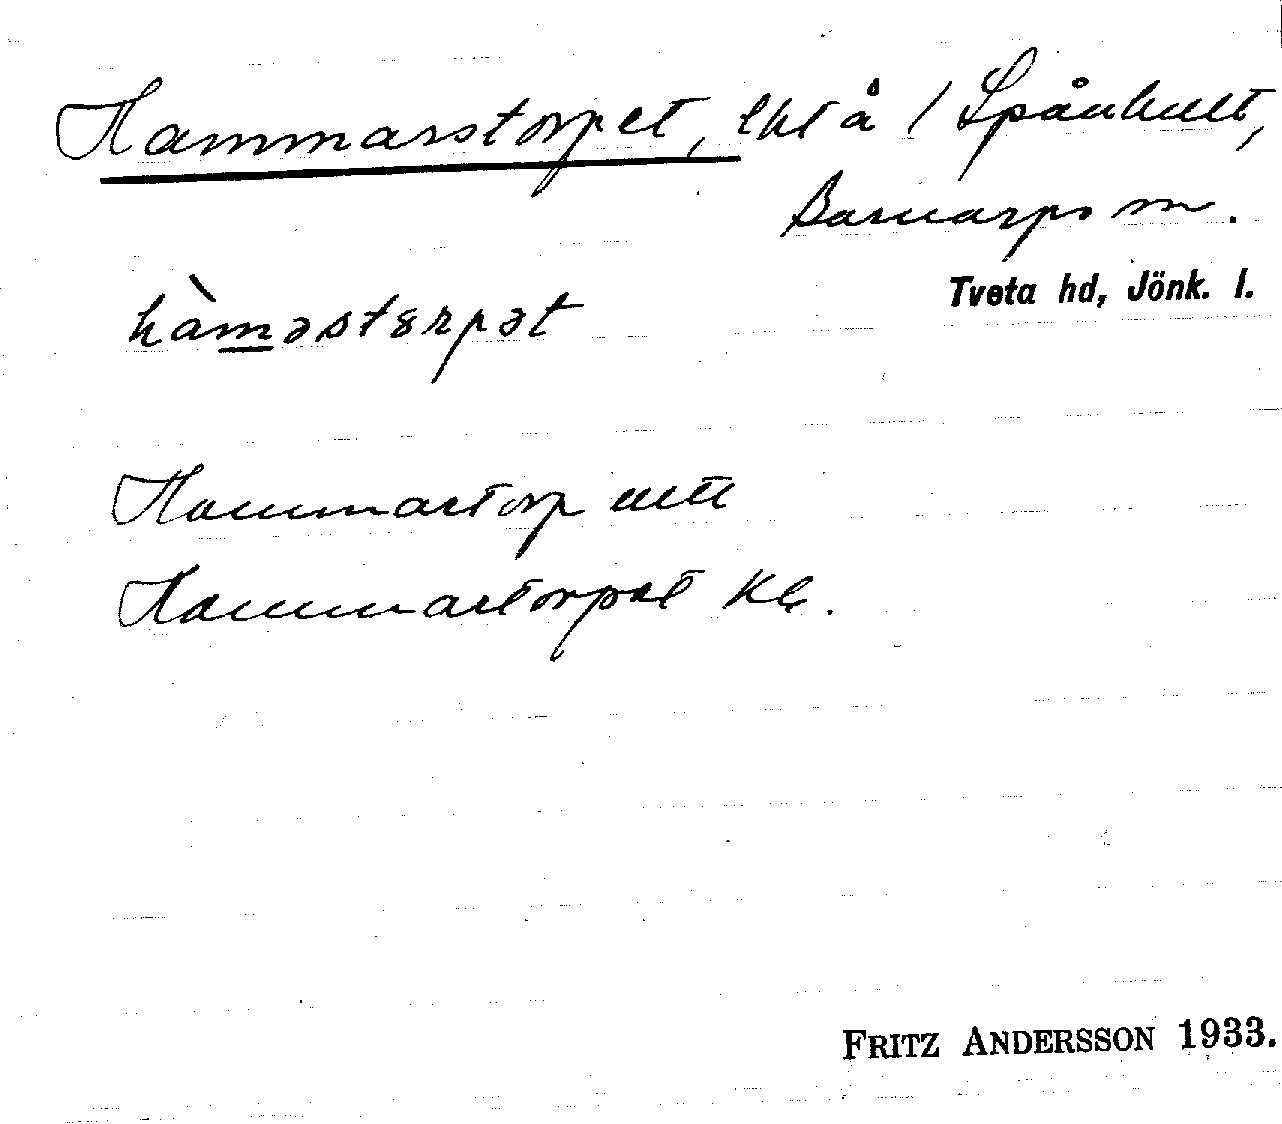 Hammarstorpet, lht å 1 Spånhult,
Barnarps sn.
Tveta hd, Jönk. l.
hàməstɵrpət
Hammarstorp
Hammarstorpet
FRITZ ANDERSSON 1933.